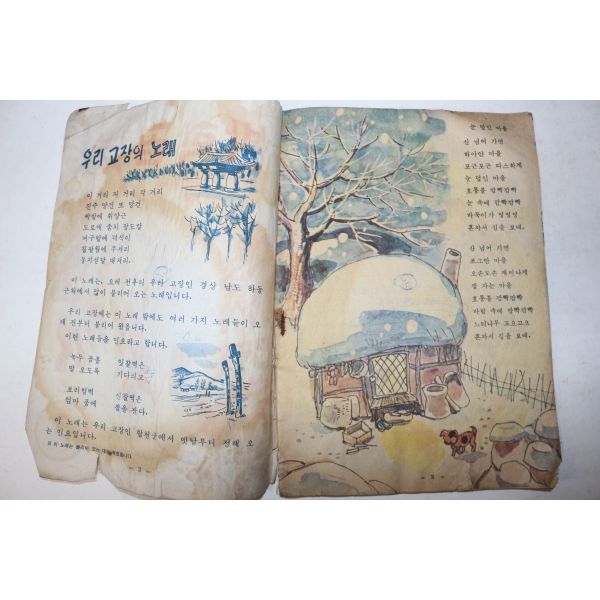 우리 고장의 노래
이 거리 저 거리 각 거리
진주 망건 또 망건
짝발에 휘양근
도로매 줌치 장도칼
머구밭에 덕석이
칠팔월에 무서리
동지섣달 대서리.
이 노래는, 오래 전부터 우리 고장인 경상 남도 하동
근처에서 많이 불리어 오는 노래입니다.
우리 고장에는 이 노래 밖에도 여러 가지 노래들이 오
래 전부터 불리어 왔읍니다.
이런 노래들을 민요라고 합니다.
녹두 곰을
발 오도록
잉잘벽은
기다리고
보리쌀벽
엄마 품에
신잘벽은
잠을 잔다.
이 노래는 우리 고장인 합천군에서 옛날부터 전해 오
는 민요입니다.
— 2 —
눈 덮인 마을
산 넘어 가면
하아얀 마을
포근포근 따스하게
눈 덮인 마을
호롱불 깜빡깜빡
눈 속에 깜빡깜빡
바둑이가 멍멍멍
혼자서 집을 보네.
산 넘어 가면
조그만 마을
오손도손 재미나게
잘 자는 마을
호롱불 깜빡깜빡
바람 속에 깜빡깜빡
느티나무 꼬으으으
혼자서 집을 보네.
— 3 —